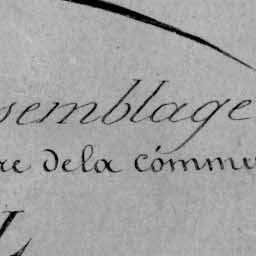 semblage
re dela commu
L